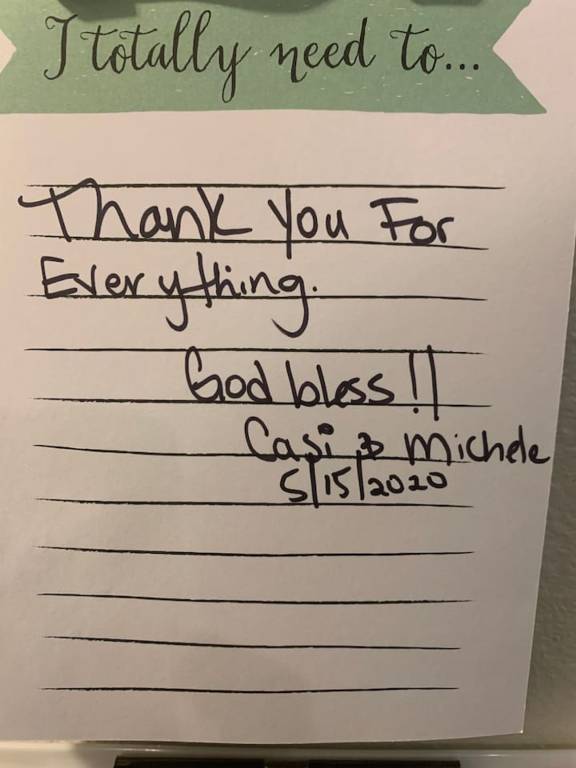 I totally need to...
Thank You For
Everything.
God bless!!
Casi & Michele
5/15/2020